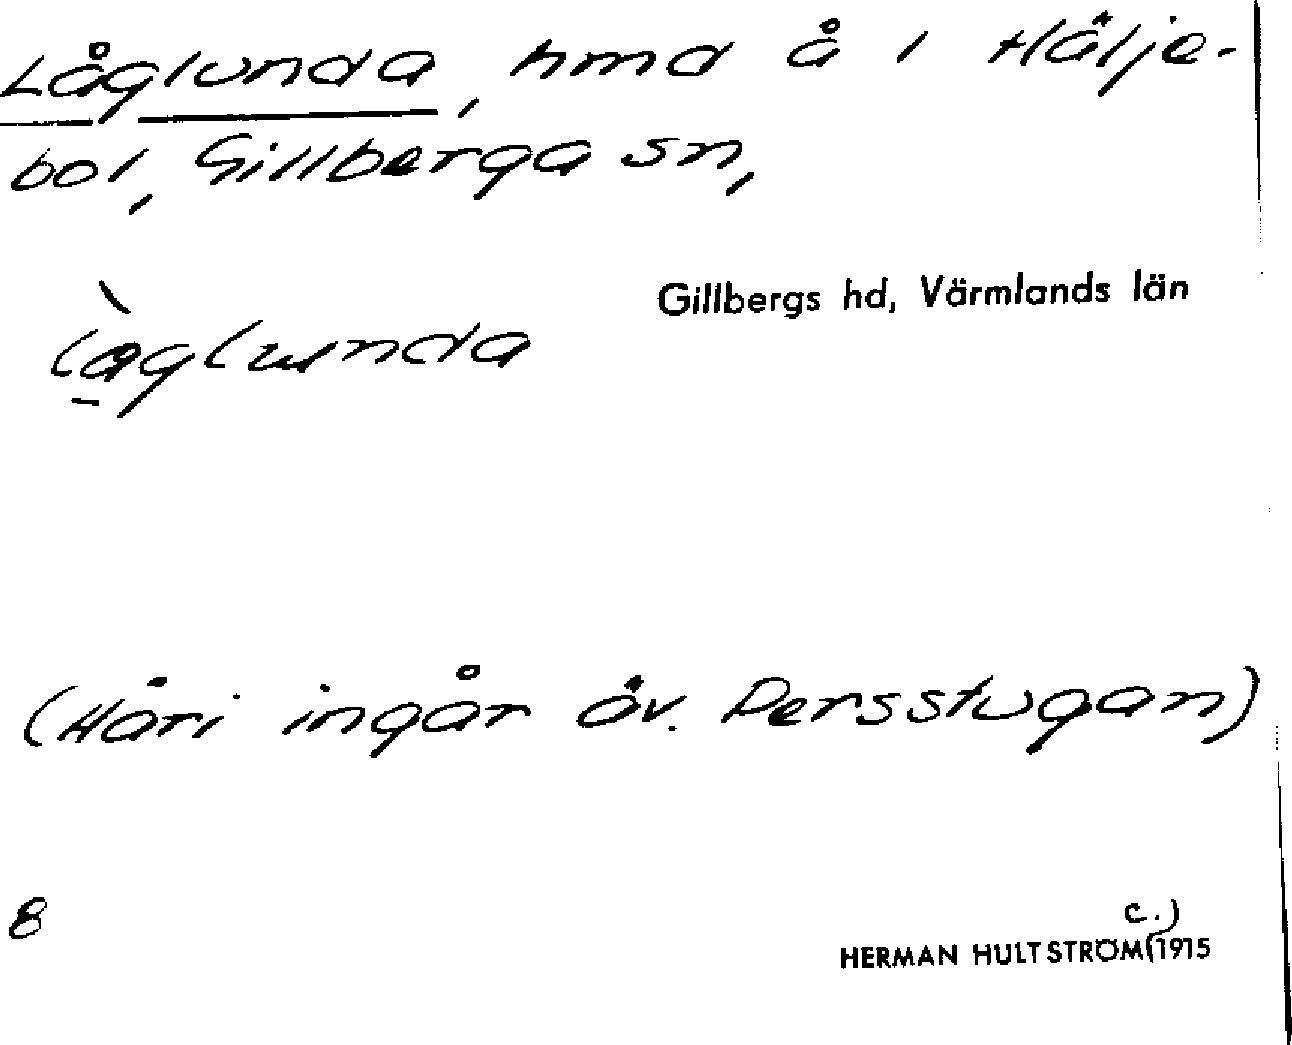 Låglunda, hmd å i Hälje-
bol, Gillberga sn,
Gillbergs hd, Värmlands län
làglunda
(Häri ingår äv. Persstugan)
8
c.)
HERMAN HULTSTRÖM (1915